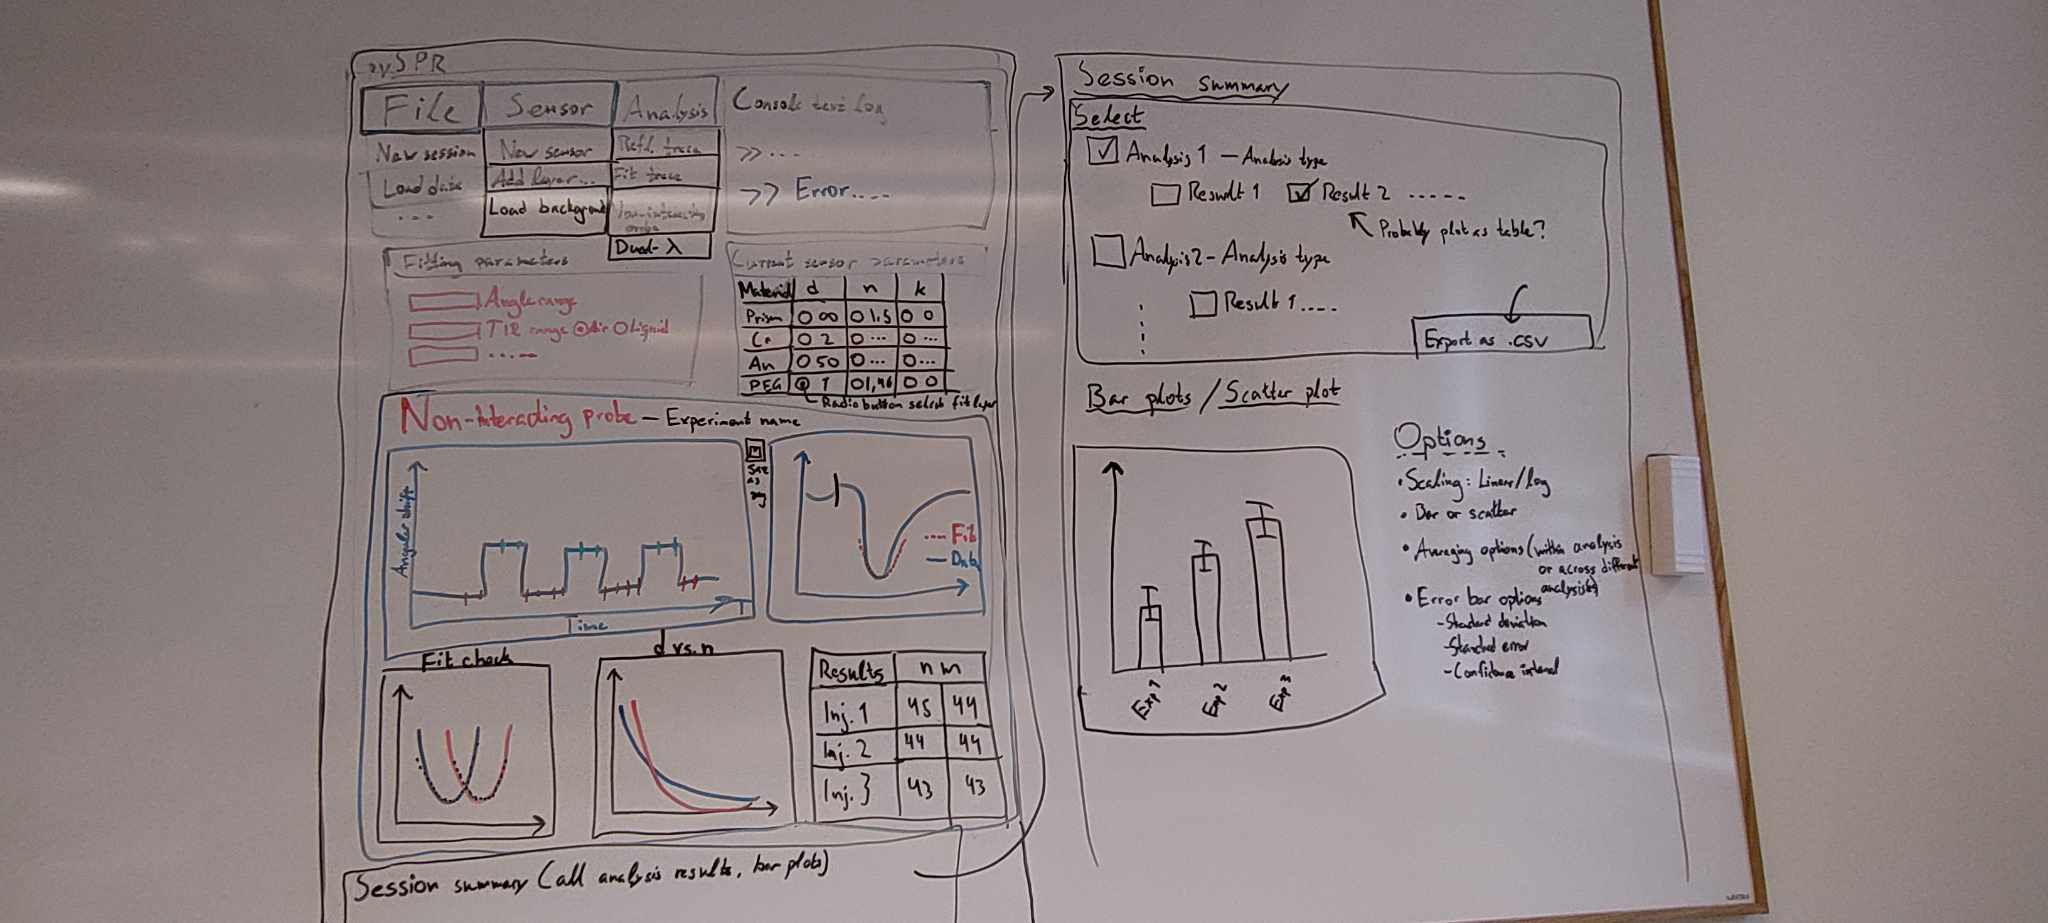 SPR
File
Sensor
Analysis
New session
Load data
...
New sensor
Add layer...
Load background
Refl. trace
Fit trace
Non-interacting probe
Dual-λ
Console text log
>> ...
>> Error....
Fitting parameters
Angle range
TIR range Air Liquid
.....
Current sensor parameters
Material d n k
Prism ∞ 1.5 0
Cr 2 ... ...
Au 50 ... ...
PEG 1 1,46 0
Radio button selects fit layer
Non-interacting probe — Experiment name
Angular shift
Time
Save as
.... Fit
— Data
Fit check
d vs. n
Results n m
Inj. 1 45 44
Inj. 2 44 44
Inj. 3 43 43
Session summary (all analysis results, bar plots)
Session summary
Select
Analysis 1 — Analysis type
Result 1 Result 2 .....
Probably plot as table?
Analysis 2 - Analysis type
Result 1 ....
Export as .csv
Bar plots / Scatter plot
Exp 1
Exp 2
Exp 3
Options
• Scaling: Linear/log
• Bar or scatter
• Averaging options (within analysis
or across different
analysists)
• Error bar options
- Standard deviation
- Standard error
- Confidence interval